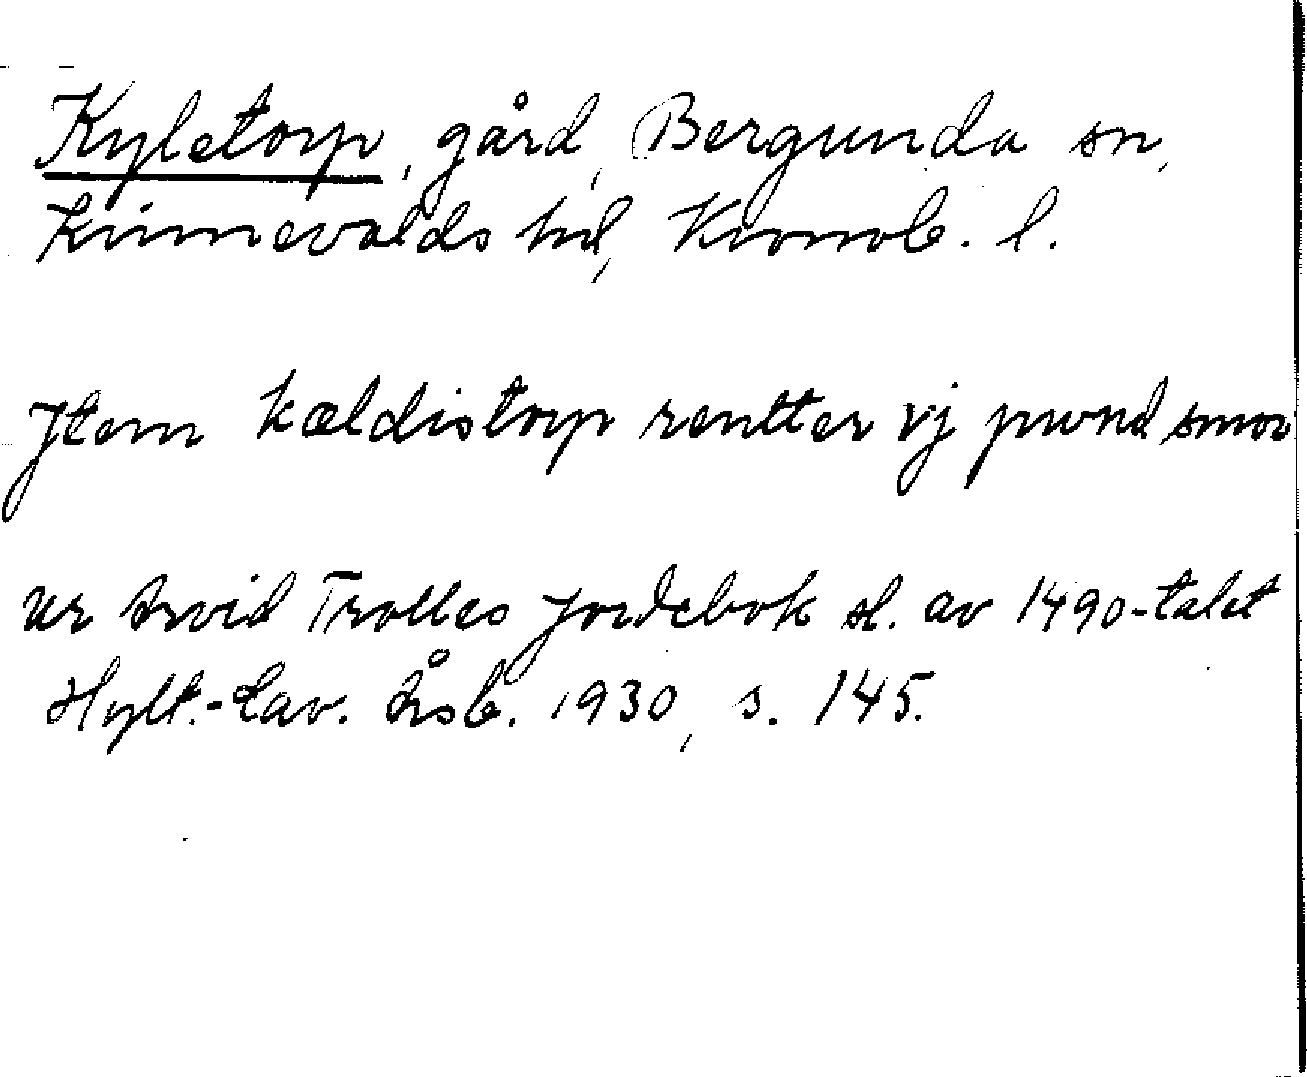 Kyletorp, gård, Bergunda sn,
Kinnevalds hd, Kronob. l.
Jtem kældistorp rentter vj pwnd smør
Ur Arvid Trolles jordebok sl. av 1490-talet
Hylt.-Cav. Årsb. 1930, s. 145.